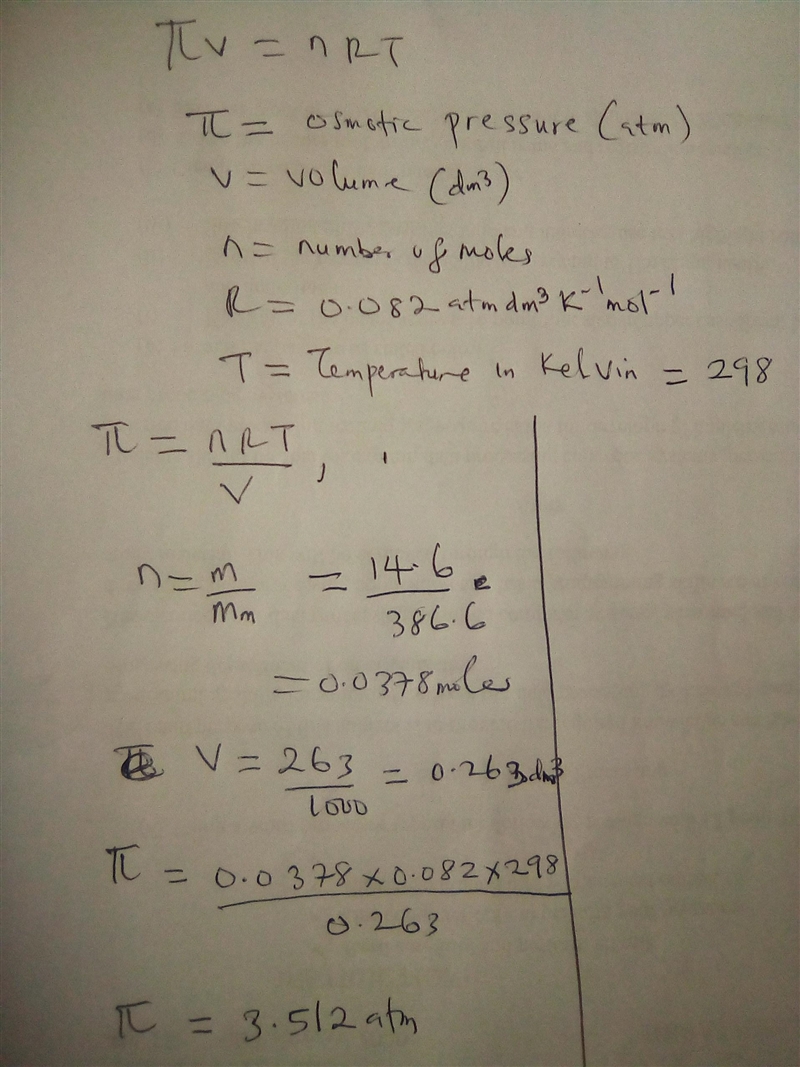 πV = nRT
π = osmotic pressure (atm)
V = volume (dm³)
n = number of moles
R = 0.082 atm dm³ K⁻¹ mol⁻¹
T = Temperature in Kelvin = 298
π = nRT/V ,
n = m/Mm = 14.6/386.6
= 0.0378 moles
V = 263/1000 = 0.263 dm³
π = 0.0378 × 0.082 × 298 / 0.263
π = 3.512 atm